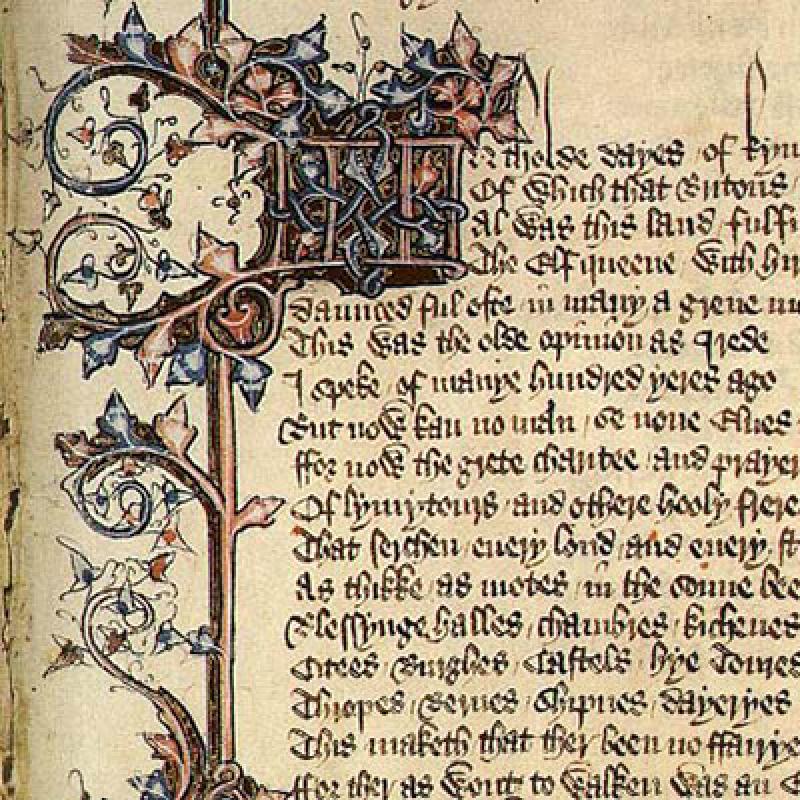 N tholde dayes / of kyn
Of Which that Britons
Al Was this land / fulfi
The Elf queene / With hir
daunced ful ofte / in many a grene m
This Was the olde opinion as I rede
I speke / of manye hundred yeres ago
But now kan no man / se none Elues
ffor now the grete charitee / and prayer
Of lymytours / and othere hooly ffrere
That serchen / euery lond / and euery / st
As thikke / as motes / in the sonne bee
Blessynge halles / chambres / kichenes
Citees / Burghes / Castels / hye Toures
Thropes / Bernes / Shipnes / dayeryes
This maketh that ther been no ffairye
ffor ther as wont to walken was an